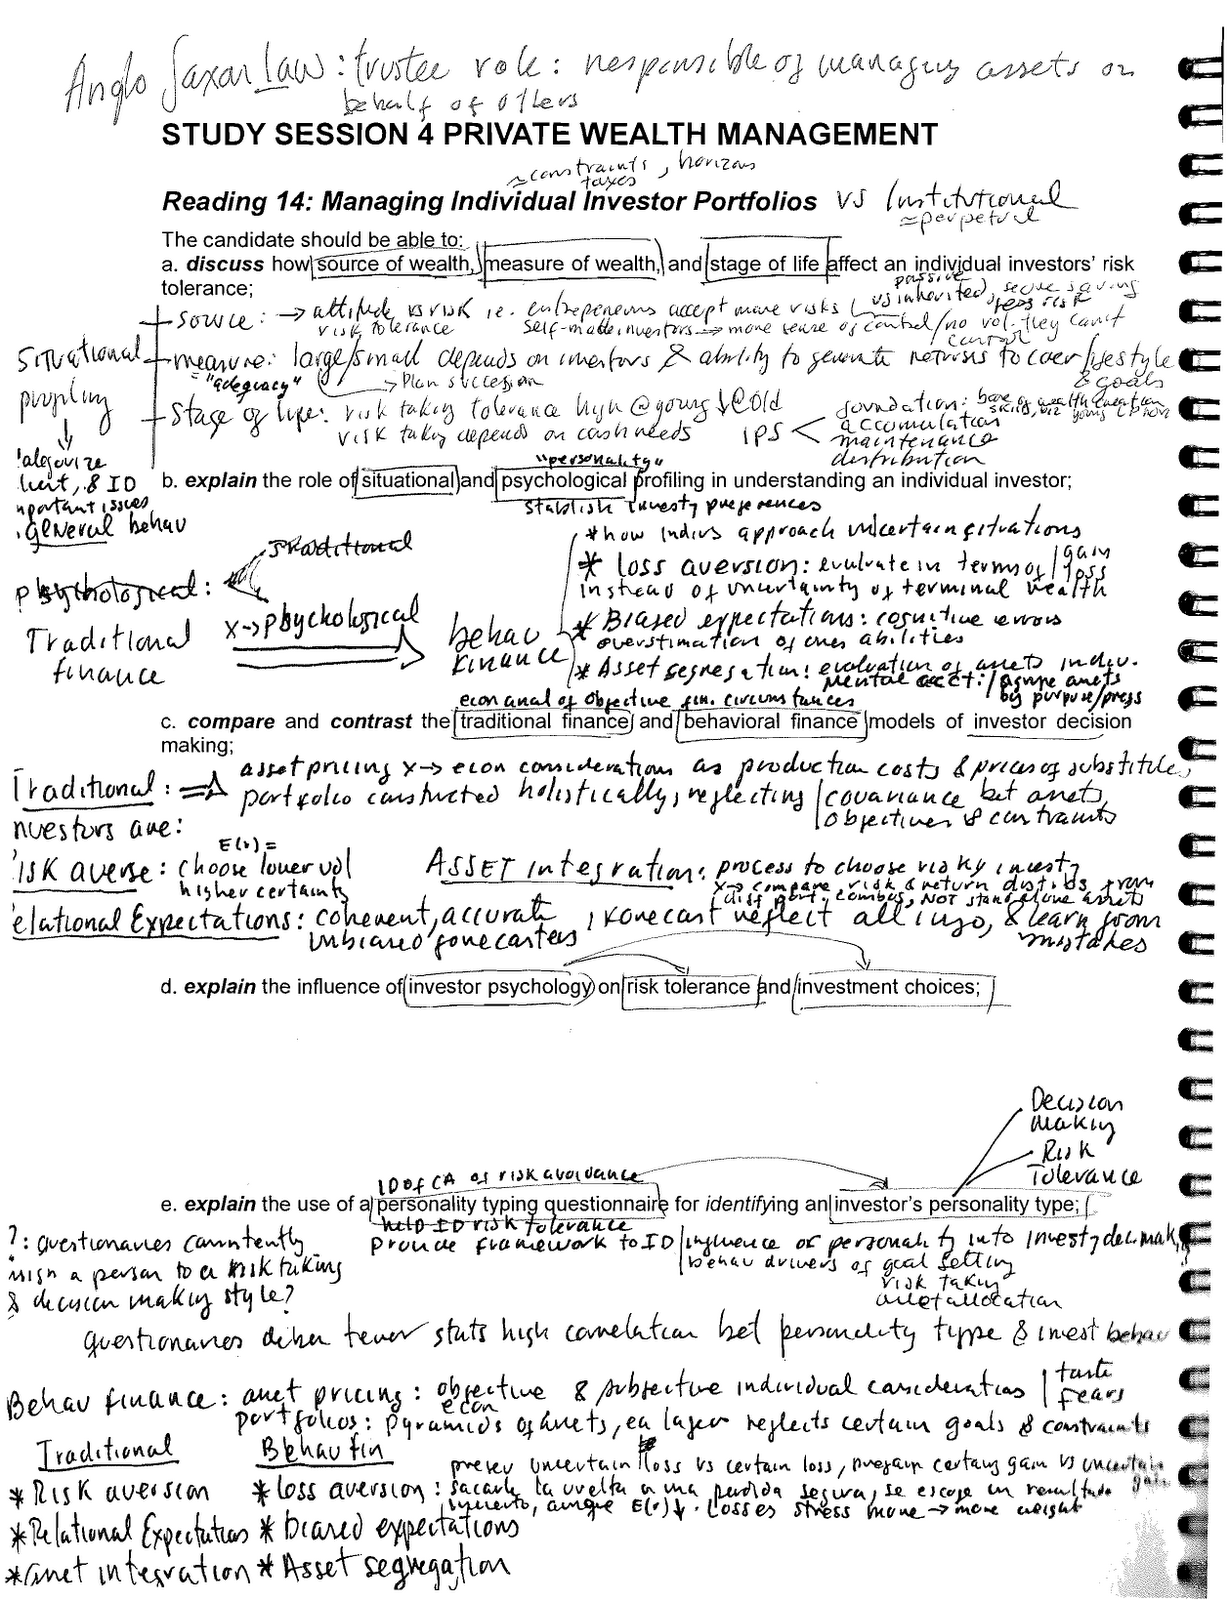 Anglo Saxon Law: trustee role: responsible of managing assets on
behalf of others
STUDY SESSION 4 PRIVATE WEALTH MANAGEMENT
≈ constraints, horizon
taxes
Reading 14: Managing Individual Investor Portfolios vs Institutional
≈ perpetual
The candidate should be able to:
a. discuss how source of wealth, measure of wealth, and stage of life affect an individual investors' risk
tolerance;
passive
source: → attitude vs risk i.e. entrepreneurs accept more risks vs inherited, secure saving
risk tolerance self-made investors → more sense of control/no vol. they can't
less risk
control
Situational
profiling
measure: large/small depends on investors & ability to generate returns to cover lifestyle
& goals
= "adequacy" → Plan succession
Stage of life: risk taking tolerance high @ young ↓@old
risk taking depends on cash needs
IPS < foundation: base of wealth creation
accumulation
maintenance
distribution
general behav
"personality"
b. explain the role of situational and psychological profiling in understanding an individual investor;
stablish investg preferences
Traditional
Psychological:
Traditional
finance
x→ psychological
behav
finance
* how indivs approach uncertain situations
* loss aversion: evaluate in terms of gain
loss
instead of uncertainty of terminal wealth
* Biased expectations: cognitive errors
overstimation of ones abilities
* Asset segregation: evaluation of assets indiv.
mental acct: / agrupe assets
by purpose/press
econ anal of objective fin. circumstances
c. compare and contrast the traditional finance and behavioral finance models of investor decision
making;
Traditional: ⇒ asset pricing x→ econ considerations as production costs & prices of substitutes
portfolio constructed holistically, reflecting covariance bet assets,
objectives & constraints
nvestors are:
E(r) =
risk averse: choose lower vol
higher certainty
ASSET integration: process to choose risky investg
x→ compare risk & return distribs from
diff port. combos, NOT stand alone assets
elational Expectations: coherent, accurate
unbiased forecasters
, forecast reflect all info, & learn from
mistakes
d. explain the influence of investor psychology on risk tolerance and investment choices;
Decision
making
Risk
Tolerance
ID of CA of risk avoidance
e. explain the use of a personality typing questionnaire for identifying an investor's personality type;
help ID risk tolerance
provide framework to ID influence of personality into investg dec. mak
behav drivers of goal setting
risk taking
asset allocation
?: questionaries consistently
a person to a risk taking
& decision making style?
questionaries high correlation bet personality type & invest behav
Behav finance: asset pricing: objective & subjective individual consideration taste
fears
econ
portfolios: pyramids of assets, ea layer reflects certain goals & constraints
Traditional Behav fin
prefer uncertain loss vs certain loss, certain gain vs uncertain
gain
* Risk aversion * loss aversion: sacarle la vuelta a una perdida segura, se escoge un resultado
incierto, aunque E(r)↓. Losses stress more → more weight
* Relational Expectations * biased expectations
* Asset integration * Asset segregation